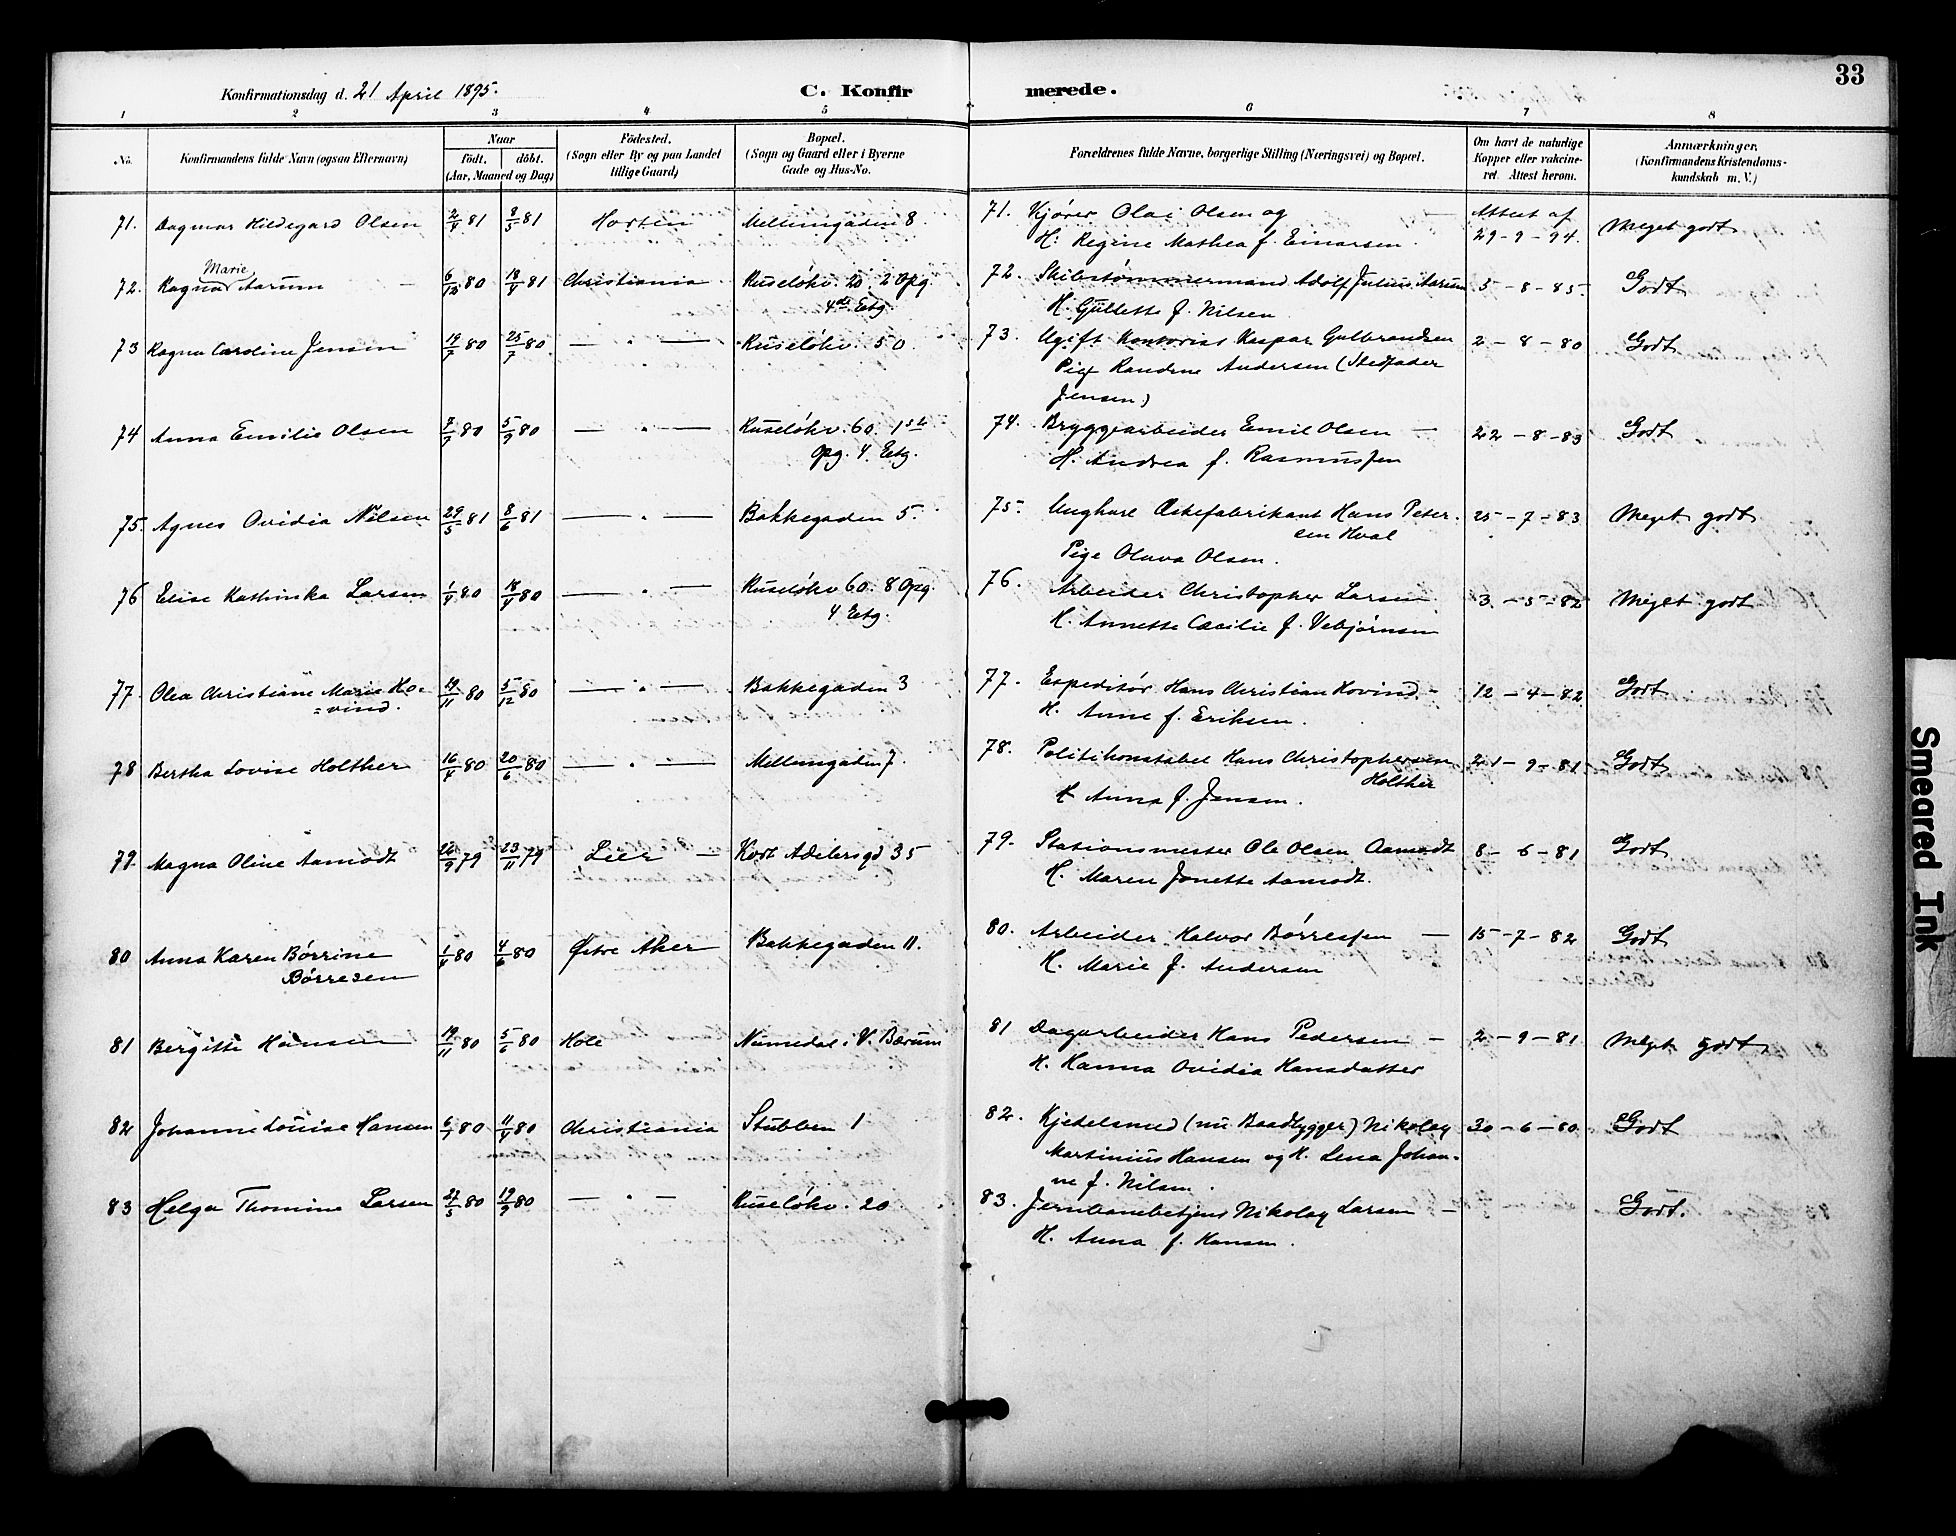 33
Konfirmationsdag d. 21 April 1895.
C. Konfirmerede.
1 2 3 4 5 6 7 8
No.
Konfirmandens fulde Navn (ogsaa Efternavn)
Naar
födt. döbt.
(Aar, Maaned og Dag)
Födested.
(Sogn eller By og paa Landet
tillige Gaard)
Bopæl.
(Sogn og Gaard eller i Byerne
Gade og Hus-No.
Forældrenes fulde Navne, borgerlige Stilling (Næringsvei) og Bopæl.
Om havt de naturlige
Kopper eller vakcine-
ret. Attest herom.
Anmærkninger.
(Konfirmandens Kristendoms-
kundskab m. V.)
71. Dagmar Hildegard Olsen 2/4 81 8/5 81 Horten Mellumgaden 8. 71. Kjører Olai Olsen og Attest af Meget godt
H. Regine Mathea f. Einarsen. 29-9-94.
Marie
72. Ragna Aarum 6/12 80 18/4 81 Christiania Ruseløkv. 20. 2 Opg. 72. Skibstømmermand Adolf Julius Aarum 5-8-85. Godt
4de Etg. H. Gullette f. Nilsen
73 Ragna Caroline Jensen 14/7 80 25/7 80 — " — Ruseløkv. 50. 73. Ugift Kontorist Kaspar Gulbrandsen 2-8-80 Godt
Pige Randine Andersen (Stedfader
Jensen)
74 Anna Emilie Olsen 7/7 80 5/9 80 — " — Ruseløkv. 60. 1ste 74. Bryggearbeider Emil Olsen — 22-8-83 Godt
Opg. 4 Etg. H. Andrea f. Rasmussen
75. Agnes Ovidia Nilsen 29/5 81 8/6 81 — " — Bakkegaden 5. 75. Ungkarl Æskefabrikant Hans Peter- 25-7-83 Meget godt
sen Hval
Pige Oluva Olsen.
76 Elise Kathinka Larsen 1/4 80 18/4 80 — " — Ruseløkv 60. 8 Opg. 76. Arbeider Christopher Larsen 3-5-82 Meget godt
4 Etg. H. Annette Cæcilie f. Vebjørnsen
77 Olea Christiane Marie Ho- 19/11 80 5/12 80 — " — Bakkegaden 3 77. Expeditør Hans Christian Hovind - 12-4-82 Godt
=vind. H. Anne f. Eriksen.
78 Bertha Lovise Holther 16/4 80 20/6 80 — " — Mellumgaden 7. 78. Politikonstabel Hans Christophersen 21-9-81 Godt
Holther
H Anna f. Jensen.
79. Magna Oline Aamodt 26/9 79 23/11 79 Lier — Kort Adelersgd 35 79. Stationsmester Ole Olsen Aamodt 8-6-81 Godt
H. Maren Jonette Aamodt.
80 Anna Karen Børrine 1/4 80 4/6 80 Østre Aker Bakkegaden 11. 80. Arbeider Halvor Børressen — 15-7-82 Godt
Børresen H. Marie f. Andersen
81 Bergitte Hansen 19/11 80 5/6 80 Hole Numedal i V. Bærum 81 Dagarbeider Hans Pedersen — 2-9-81 Meget godt
H. Hanna Ovidia Hansdatter
82 Johanne Louise Hansen 6/1 80 11/4 80 Christiania Stubben 1 82. Kjedelsmed (nu Baadbygger) Nikolay 30-6-80 Godt
Martinius Hansen og H. Lena Johan-
ne f. Nilsen.
83 Helga Thomine Larsen 27/5 80 19/9 80 — " — Ruseløkv. 20 83. Jernbanebetjent Nikolay Larsen — Godt.
H. Anna f. Hansen.
Smeared Ink